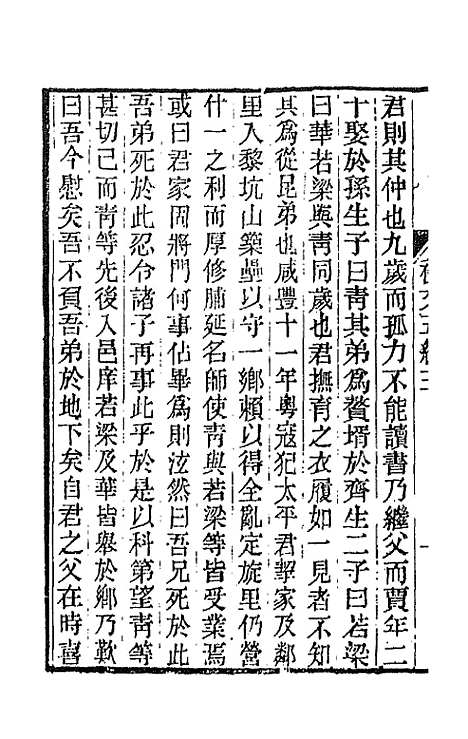 君則其仲也九歲而孤力不能讀書乃繼父而賈年二
十娶於孫生子曰靑其弟為贅壻於齊生二子曰若梁
曰華若梁與靑同歲也君撫育之衣履如一見者不知
其為從昆弟也咸豐十一年粵寇犯太平君挈家及鄰
里入黎坑山築壘以守一鄉賴以得全亂定旋里仍營
什一之利而厚修脯延名師使靑與若梁等皆受業焉
或曰君家固將門何事佔畢為則泫然曰吾兄死於此
吾弟死於此忍令諸子再事此乎於是以科第望靑等
甚切已而靑等先後入邑庠若梁及華皆舉於鄉乃歎
曰吾今慰矣吾不負吾弟於地下矣自君之父在時喜